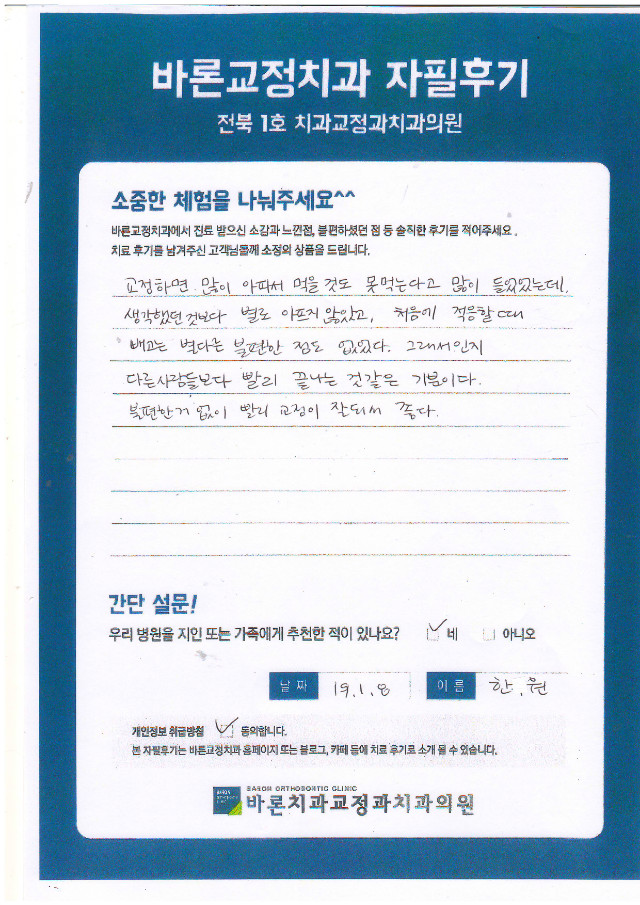 바론교정치과 자필후기
전북 1호 치과교정과치과의원
소중한 체험을 나눠주세요^^
바른교정치과에서 진료 받으신 소감과 느낀점, 불편하셨던 점 등 솔직한 후기를 적어주세요.
치료 후기를 남겨주신 고객님들께 소정의 상품을 드립니다.
교정하면 많이 아파서 먹을것도 못먹는다고 많이 들었었는데,
생각했던 것보다 별로 아프지 않았고, 처음에 적응할 때
빼고는 별다른 불편한 점도 없었다. 그래서인지
다른사람들보다 빨리 끝나는 것같은 기분이다.
불편한거 없이 빨리 교정이 잘되서 좋다.
간단 설문!
우리 병원을 지인 또는 가족에게 추천한 적이 있나요? 네 아니오
날 짜 19.1.8 이 름 한.원
개인정보 취급방침 동의합니다.
본 자필후기는 바른교정치과 홈페이지 또는 블로그, 카페 등에 치료 후기로 소개 될 수 있습니다.
BARON ORTHODONTIC CLINIC
바론치과교정과치과의원